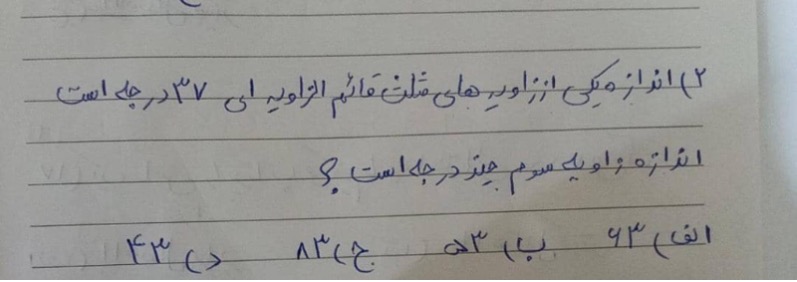 ۲) اندازه یکی از زاویه های مثلث قائم الزاویه ای ۳۷ درجه است
اندازه زاویه سوم چند درجه است ؟
الف) ۶۳ ب) ۵۳ ج) ۸۳ د) ۴۳